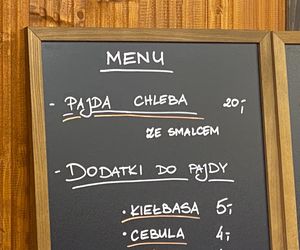 MENU
- PAJDA CHLEBA 20,-
ZE SMALCEM
- DODATKI DO PAJDY
• KIEŁBASA 5,-
• CEBULA 4,-